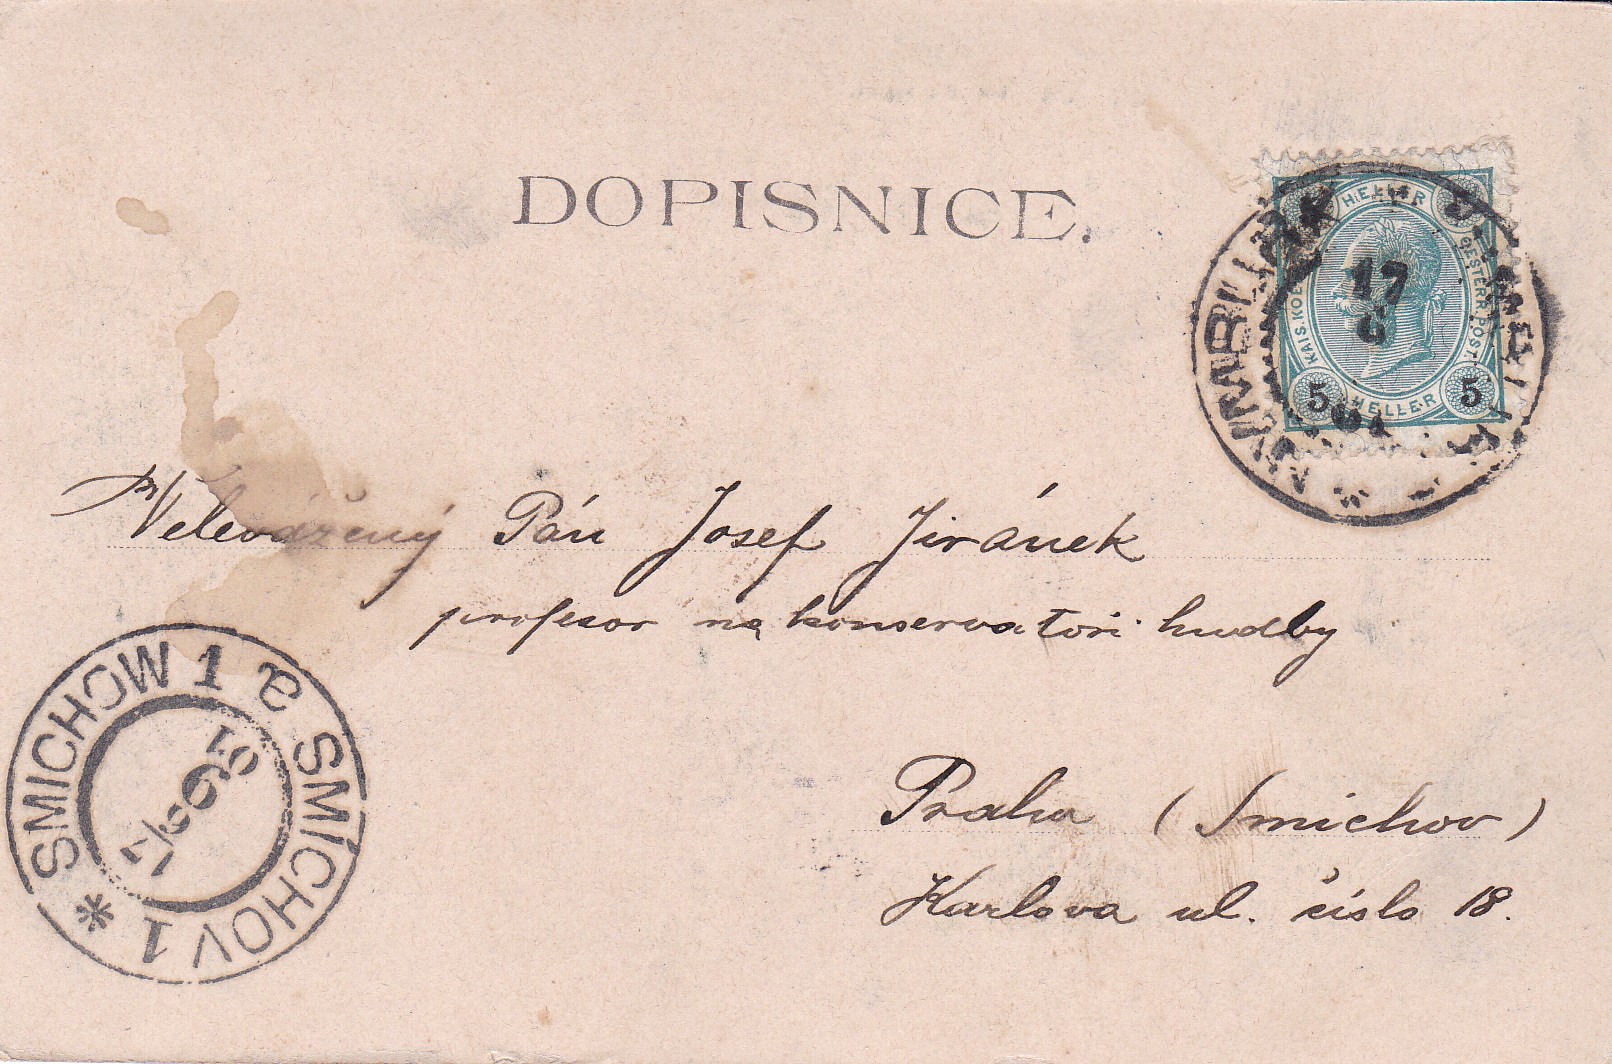 DOPISNICE.
HELLER
KAIS. KOE
OESTERR. POST.
5 HELLER 5
17
6
01
Velevážený Pán Josef Jiránek
profesor na konservatoři hudby
Praha (Smichov)
Karlova ul. číslo 18.
SMICHOW 1 e SMÍCHOV 1